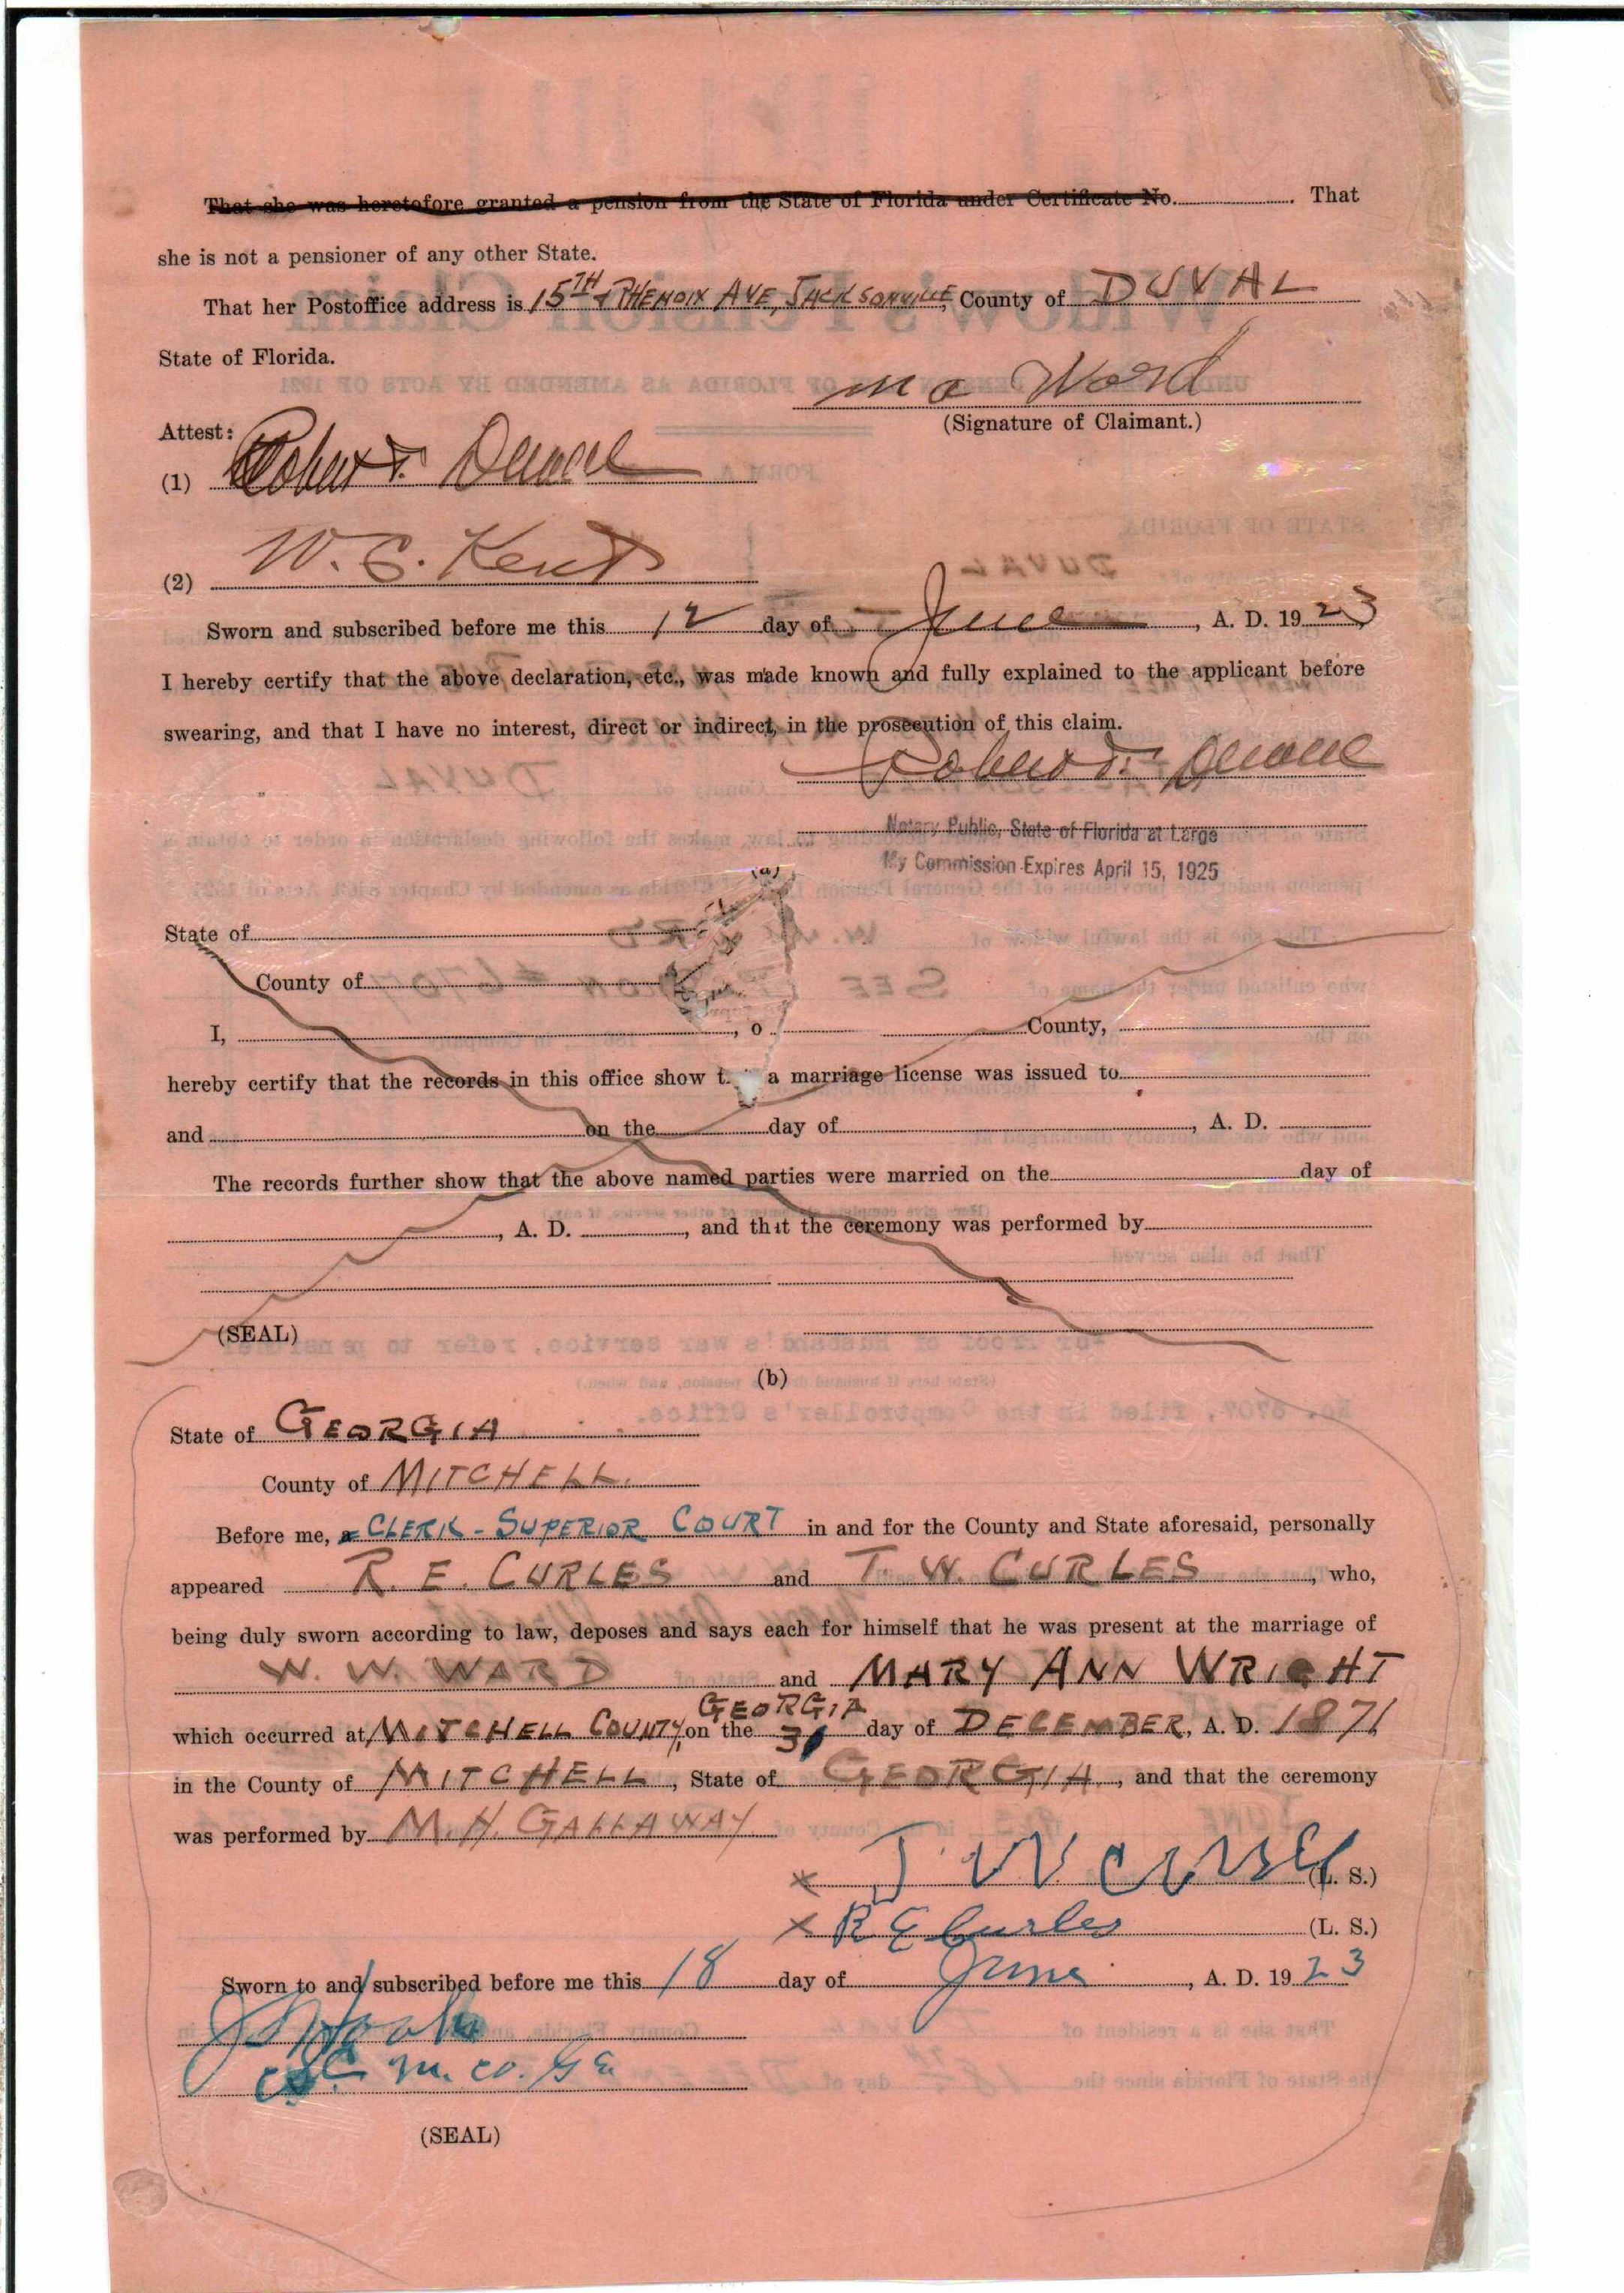 That she was heretofore granted a pension from the State of Florida under Certificate No. . That
she is not a pensioner of any other State.
That her Postoffice address is 15TH & PHENOIX AVE, JACKSONVILLE, County of DUVAL
State of Florida.
M a Ward
(Signature of Claimant.)
Attest:
(1) Robert T.
(2) W. C. Kent
Sworn and subscribed before me this 12 day of June, A. D. 1923
I hereby certify that the above declaration, etc., was made known and fully explained to the applicant before
swearing, and that I have no interest, direct or indirect, in the prosecution of this claim.
Robert T.
Notary Public, State of Florida at Large
My Commission Expires April 15, 1925
(a)
State of
County of
I, , o County,
hereby certify that the records in this office show t a marriage license was issued to
and on the day of , A. D.
The records further show that the above named parties were married on the day of
, A. D. , and that the ceremony was performed by
(SEAL)
(b)
State of GEORGIA
County of MITCHELL.
Before me, a CLERK - SUPERIOR COURT in and for the County and State aforesaid, personally
appeared R. E. CURLES and T. W. CURLES, who,
being duly sworn according to law, deposes and says each for himself that he was present at the marriage of
W. W. WARD and MARY ANN WRIGHT
GEORGIA
which occurred at MITCHELL COUNTY, on the 31 day of DECEMBER, A. D. 1871
in the County of MITCHELL, State of GEORGIA, and that the ceremony
was performed by M. H. GALLAWAY
x T W Curles (L. S.)
x R E Curles (L. S.)
Sworn to and subscribed before me this 18 day of June, A. D. 1923
C S C M. Co. Ga
(SEAL)